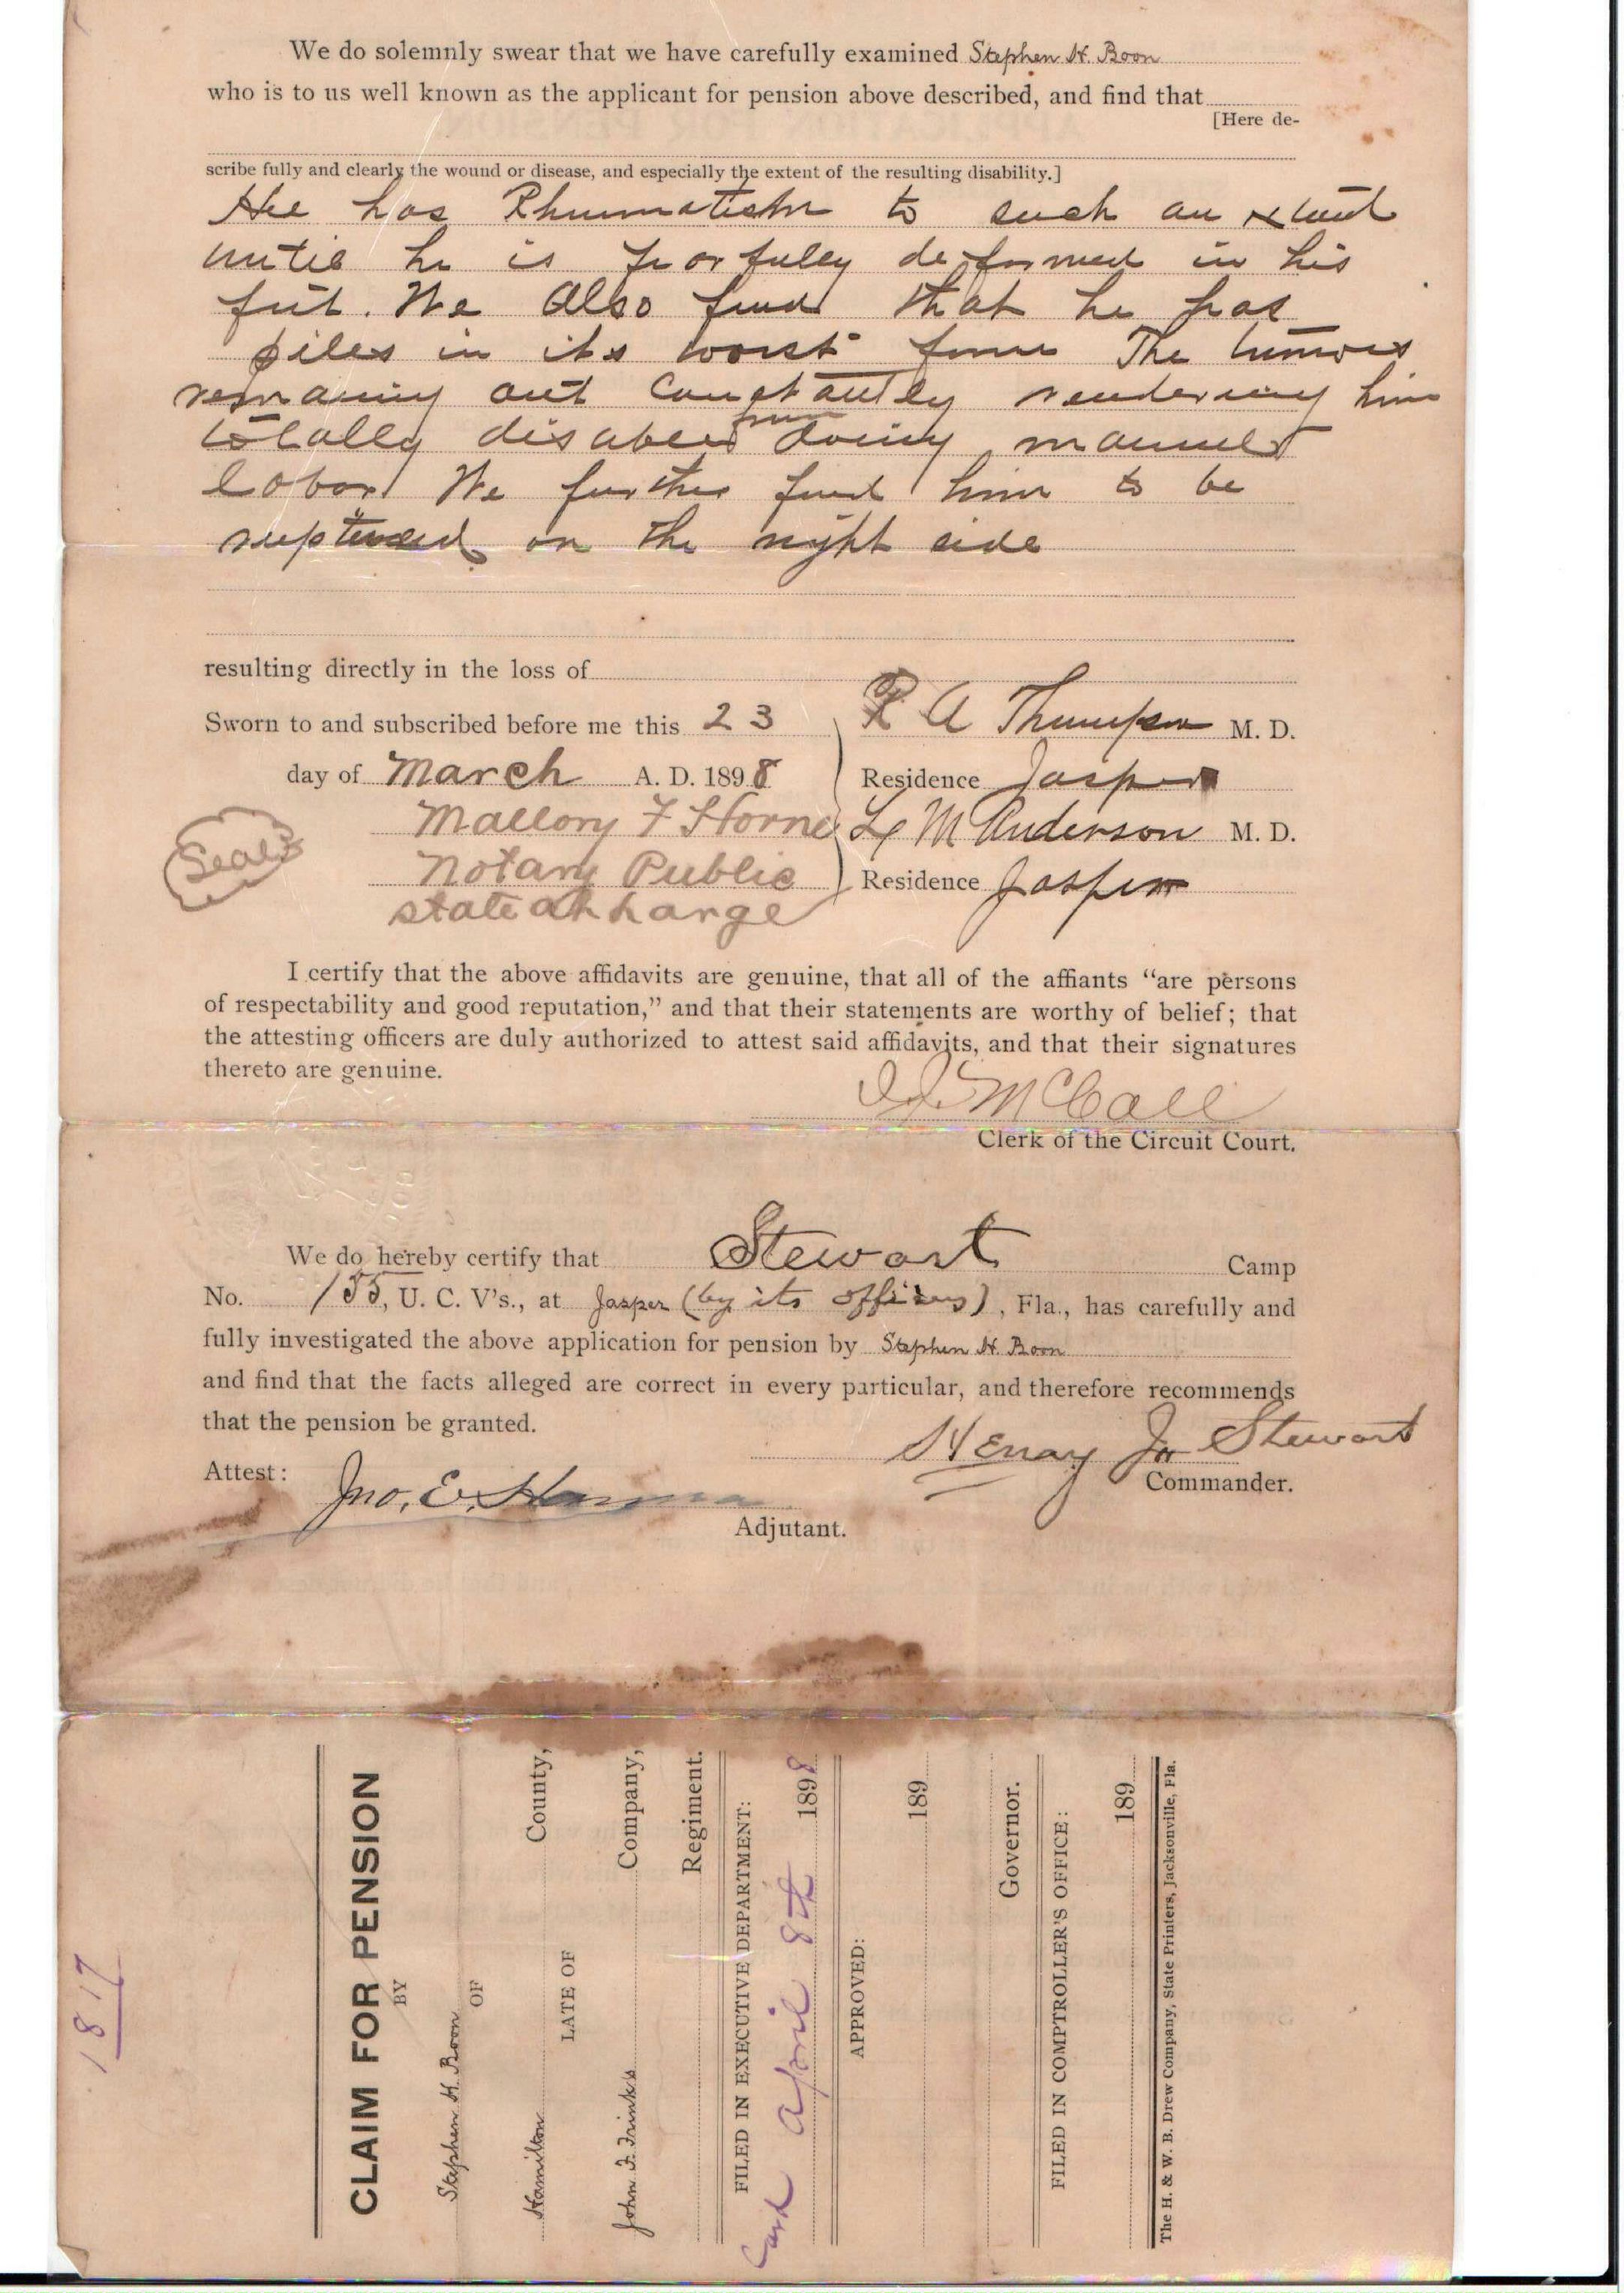 We do solemnly swear that we have carefully examined Stephen H. Boon
who is to us well known as the applicant for pension above described, and find that
[Here de-
scribe fully and clearly the wound or disease, and especially the extent of the resulting disability.]
He has Rhumatism to such an extent
until he is deformed in his
feet. We Also find that he has
piles in its worst form The tumors
remaining out Constantly rendering him
totally disabled from doing manuel
labor We further find him to be
ruptured on the right side
resulting directly in the loss of
Sworn to and subscribed before me this 23
day of March A. D. 1898
Mallory F Horne
Notary Public
state at Large
Seal
R A Thompson M. D.
Residence Jasper
L M Anderson M. D.
Residence Jasper
I certify that the above affidavits are genuine, that all of the affiants “are persons
of respectability and good reputation,” and that their statements are worthy of belief; that
the attesting officers are duly authorized to attest said affidavits, and that their signatures
thereto are genuine.
McCall
Clerk of the Circuit Court.
We do hereby certify that Stewart Camp
No. 155, U. C. V's., at Jasper (by its officers), Fla., has carefully and
fully investigated the above application for pension by Stephen H. Boon
and find that the facts alleged are correct in every particular, and therefore recommends
that the pension be granted.
Henry J. Stewart
Commander.
Attest: Jno. E. Hanna
Adjutant.
1817
CLAIM FOR PENSION
BY
Stephen H. Boon
OF
Hamilton County,
LATE OF
John F. Frinks Company,
Regiment.
FILED IN EXECUTIVE DEPARTMENT:
April 8th 1898
APPROVED:
189
Governor.
FILED IN COMPTROLLER'S OFFICE:
189
The H. & W. B. Drew Company, State Printers, Jacksonville, Fla.